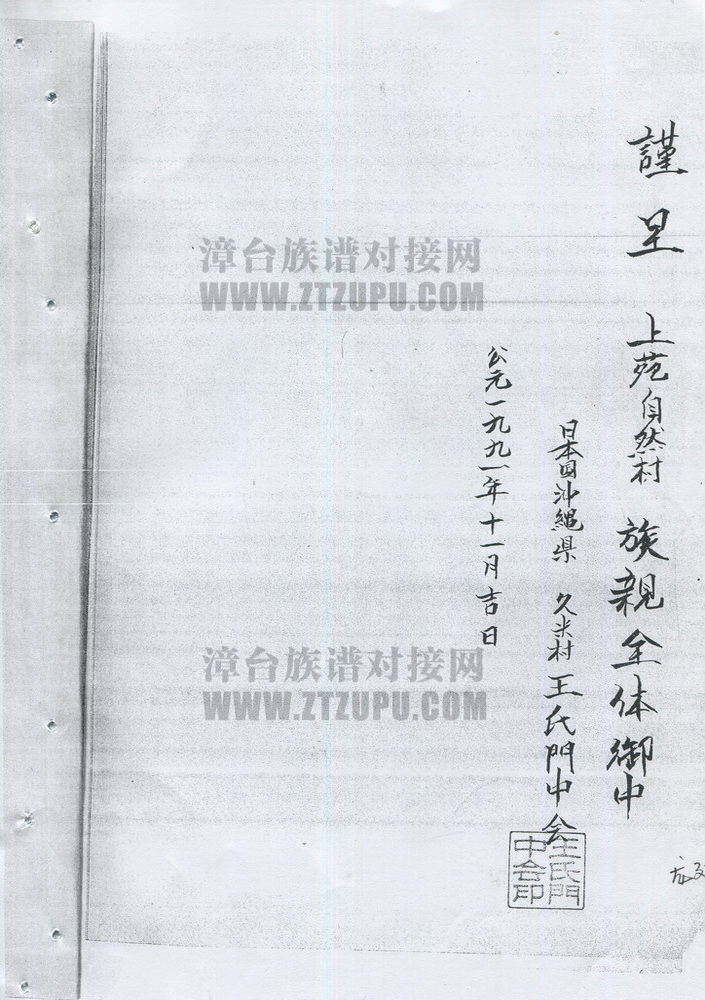 謹呈 上苑自然村 族親全体御中
日本国沖縄県 久米村 王氏門中会
公元一九九一年十一月吉日
王氏門
中会印
漳台族谱对接网
WWW.ZTZUPU.COM
漳台族谱对接网
WWW.ZTZUPU.COM